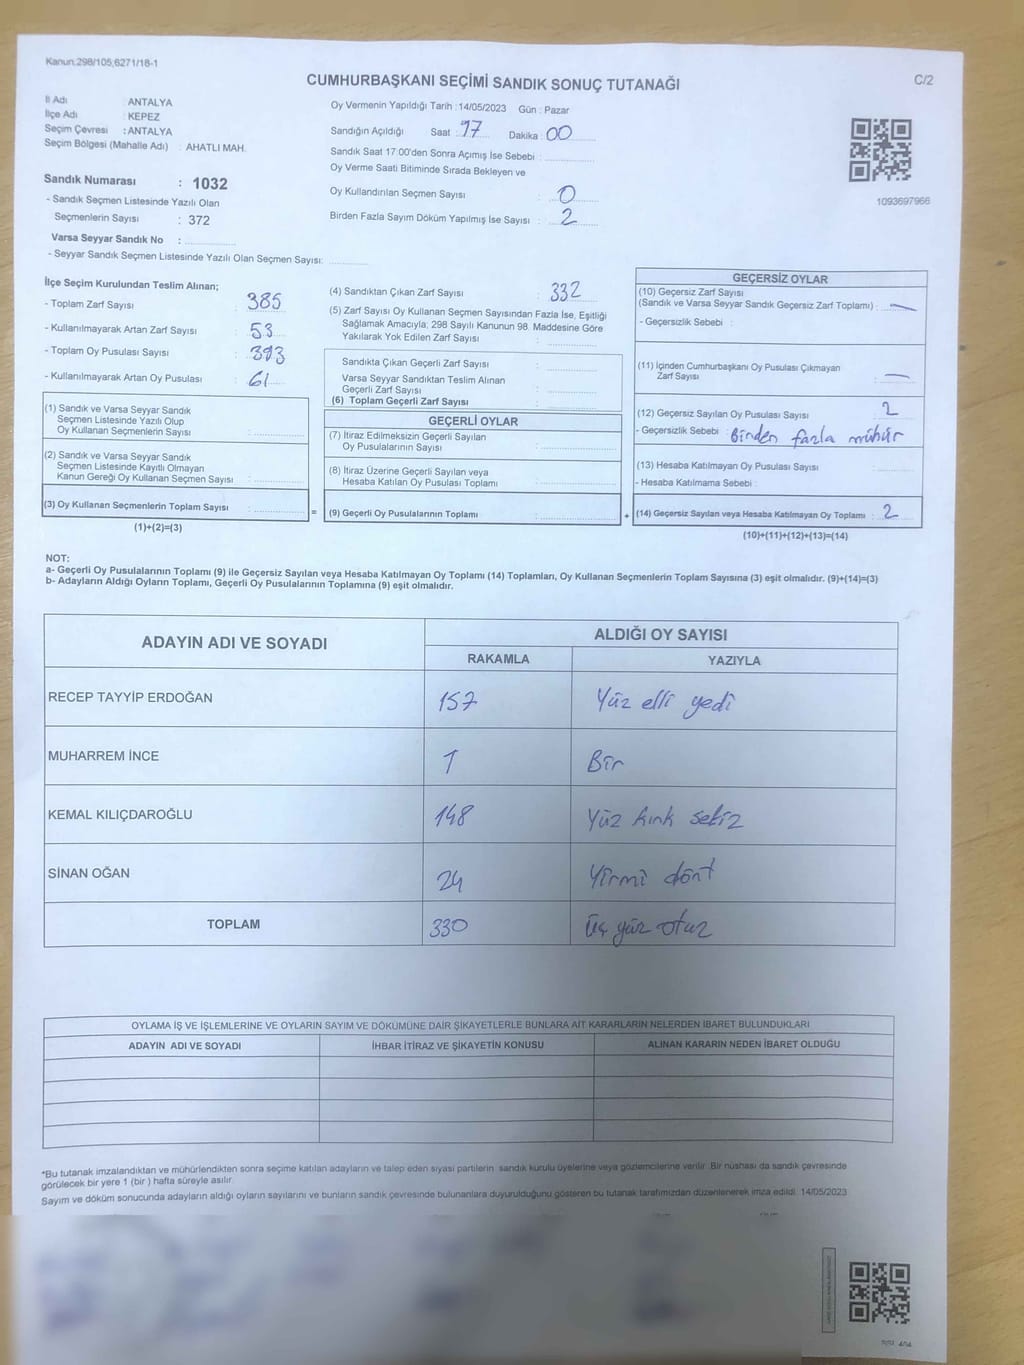 Kanun.298/105;6271/18-1
CUMHURBAŞKANI SEÇİMİ SANDIK SONUÇ TUTANAĞI
C/2
İl Adı ANTALYA
İlçe Adı : KEPEZ
Seçim Çevresi : ANTALYA
Seçim Bölgesi (Mahalle Adı) : AHATLI MAH.
Sandık Numarası : 1032
- Sandık Seçmen Listesinde Yazılı Olan
Seçmenlerin Sayısı : 372
Varsa Seyyar Sandık No :
- Seyyar Sandık Seçmen Listesinde Yazılı Olan Seçmen Sayısı:
Oy Vermenin Yapıldığı Tarih : 14/05/2023 Gün : Pazar
Sandığın Açıldığı Saat : 17 Dakika : 00
Sandık Saat 17:00'den Sonra Açımış İse Sebebi :
Oy Verme Saati Bitiminde Sırada Bekleyen ve
Oy Kullandırılan Seçmen Sayısı : 0
Birden Fazla Sayım Döküm Yapılmış İse Sayısı : 2
1093697966
İlçe Seçim Kurulundan Teslim Alınan;
- Toplam Zarf Sayısı : 385
- Kullanılmayarak Artan Zarf Sayısı : 53
- Toplam Oy Pusulası Sayısı : 393
- Kullanılmayarak Artan Oy Pusulası : 61
(1) Sandık ve Varsa Seyyar Sandık
Seçmen Listesinde Yazılı Olup
Oy Kullanan Seçmenlerin Sayısı :
(2) Sandık ve Varsa Seyyar Sandık
Seçmen Listesinde Kayıtlı Olmayan
Kanun Gereği Oy Kullanan Seçmen Sayısı :
(3) Oy Kullanan Seçmenlerin Toplam Sayısı :
(1)+(2)=(3)
(4) Sandıktan Çıkan Zarf Sayısı : 332
(5) Zarf Sayısı Oy Kullanan Seçmen Sayısından Fazla İse, Eşitliği
Sağlamak Amacıyla; 298 Sayılı Kanunun 98. Maddesine Göre
Yakılarak Yok Edilen Zarf Sayısı :
Sandıkta Çıkan Geçerli Zarf Sayısı :
Varsa Seyyar Sandıktan Teslim Alınan
Geçerli Zarf Sayısı :
(6) Toplam Geçerli Zarf Sayısı :
GEÇERLİ OYLAR
(7) İtiraz Edilmeksizin Geçerli Sayılan
Oy Pusulalarının Sayısı :
(8) İtiraz Üzerine Geçerli Sayılan veya
Hesaba Katılan Oy Pusulası Toplamı :
= (9) Geçerli Oy Pusulalarının Toplamı : +
GEÇERSİZ OYLAR
(10) Geçersiz Zarf Sayısı
(Sandık ve Varsa Seyyar Sandık Geçersiz Zarf Toplamı) : —
- Geçersizlik Sebebi :
(11) İçinden Cumhurbaşkanı Oy Pusulası Çıkmayan
Zarf Sayısı : —
(12) Geçersiz Sayılan Oy Pusulası Sayısı : 2
- Geçersizlik Sebebi : Birden fazla mühür
(13) Hesaba Katılmayan Oy Pusulası Sayısı :
- Hesaba Katılmama Sebebi :
(14) Geçersiz Sayılan veya Hesaba Katılmayan Oy Toplamı : 2
(10)+(11)+(12)+(13)=(14)
NOT:
a- Geçerli Oy Pusulalarının Toplamı (9) ile Geçersiz Sayılan veya Hesaba Katılmayan Oy Toplamı (14) Toplamları, Oy Kullanan Seçmenlerin Toplam Sayısına (3) eşit olmalıdır. (9)+(14)=(3)
b- Adayların Aldığı Oyların Toplamı, Geçerli Oy Pusulalarının Toplamına (9) eşit olmalıdır.
ADAYIN ADI VE SOYADI
ALDIĞI OY SAYISI
RAKAMLA YAZIYLA
RECEP TAYYİP ERDOĞAN 157 Yüz elli yedi
MUHARREM İNCE 1 Bir
KEMAL KILIÇDAROĞLU 148 Yüz kırk sekiz
SİNAN OĞAN 24 Yirmi dört
TOPLAM 330 Üç yüz otuz
OYLAMA İŞ VE İŞLEMLERİNE VE OYLARIN SAYIM VE DÖKÜMÜNE DAİR ŞİKAYETLERLE BUNLARA AİT KARARLARIN NELERDEN İBARET BULUNDUKLARI
ADAYIN ADI VE SOYADI İHBAR İTİRAZ VE ŞİKAYETİN KONUSU ALINAN KARARIN NEDEN İBARET OLDUĞU
*Bu tutanak imzalandıktan ve mühürlendikten sonra seçime katılan adayların ve talep eden siyasi partilerin sandık kurulu üyelerine veya gözlemcilerine verilir. Bir nüshası da sandık çevresinde
görülecek bir yere 1 (bir ) hafta süreyle asılır.
Sayım ve döküm sonucunda adayların aldığı oyların sayılarını ve bunların sandık çevresinde bulunanlara duyurulduğunu gösteren bu tutanak tarafımızdan düzenlenerek imza edildi. 14/05/2023